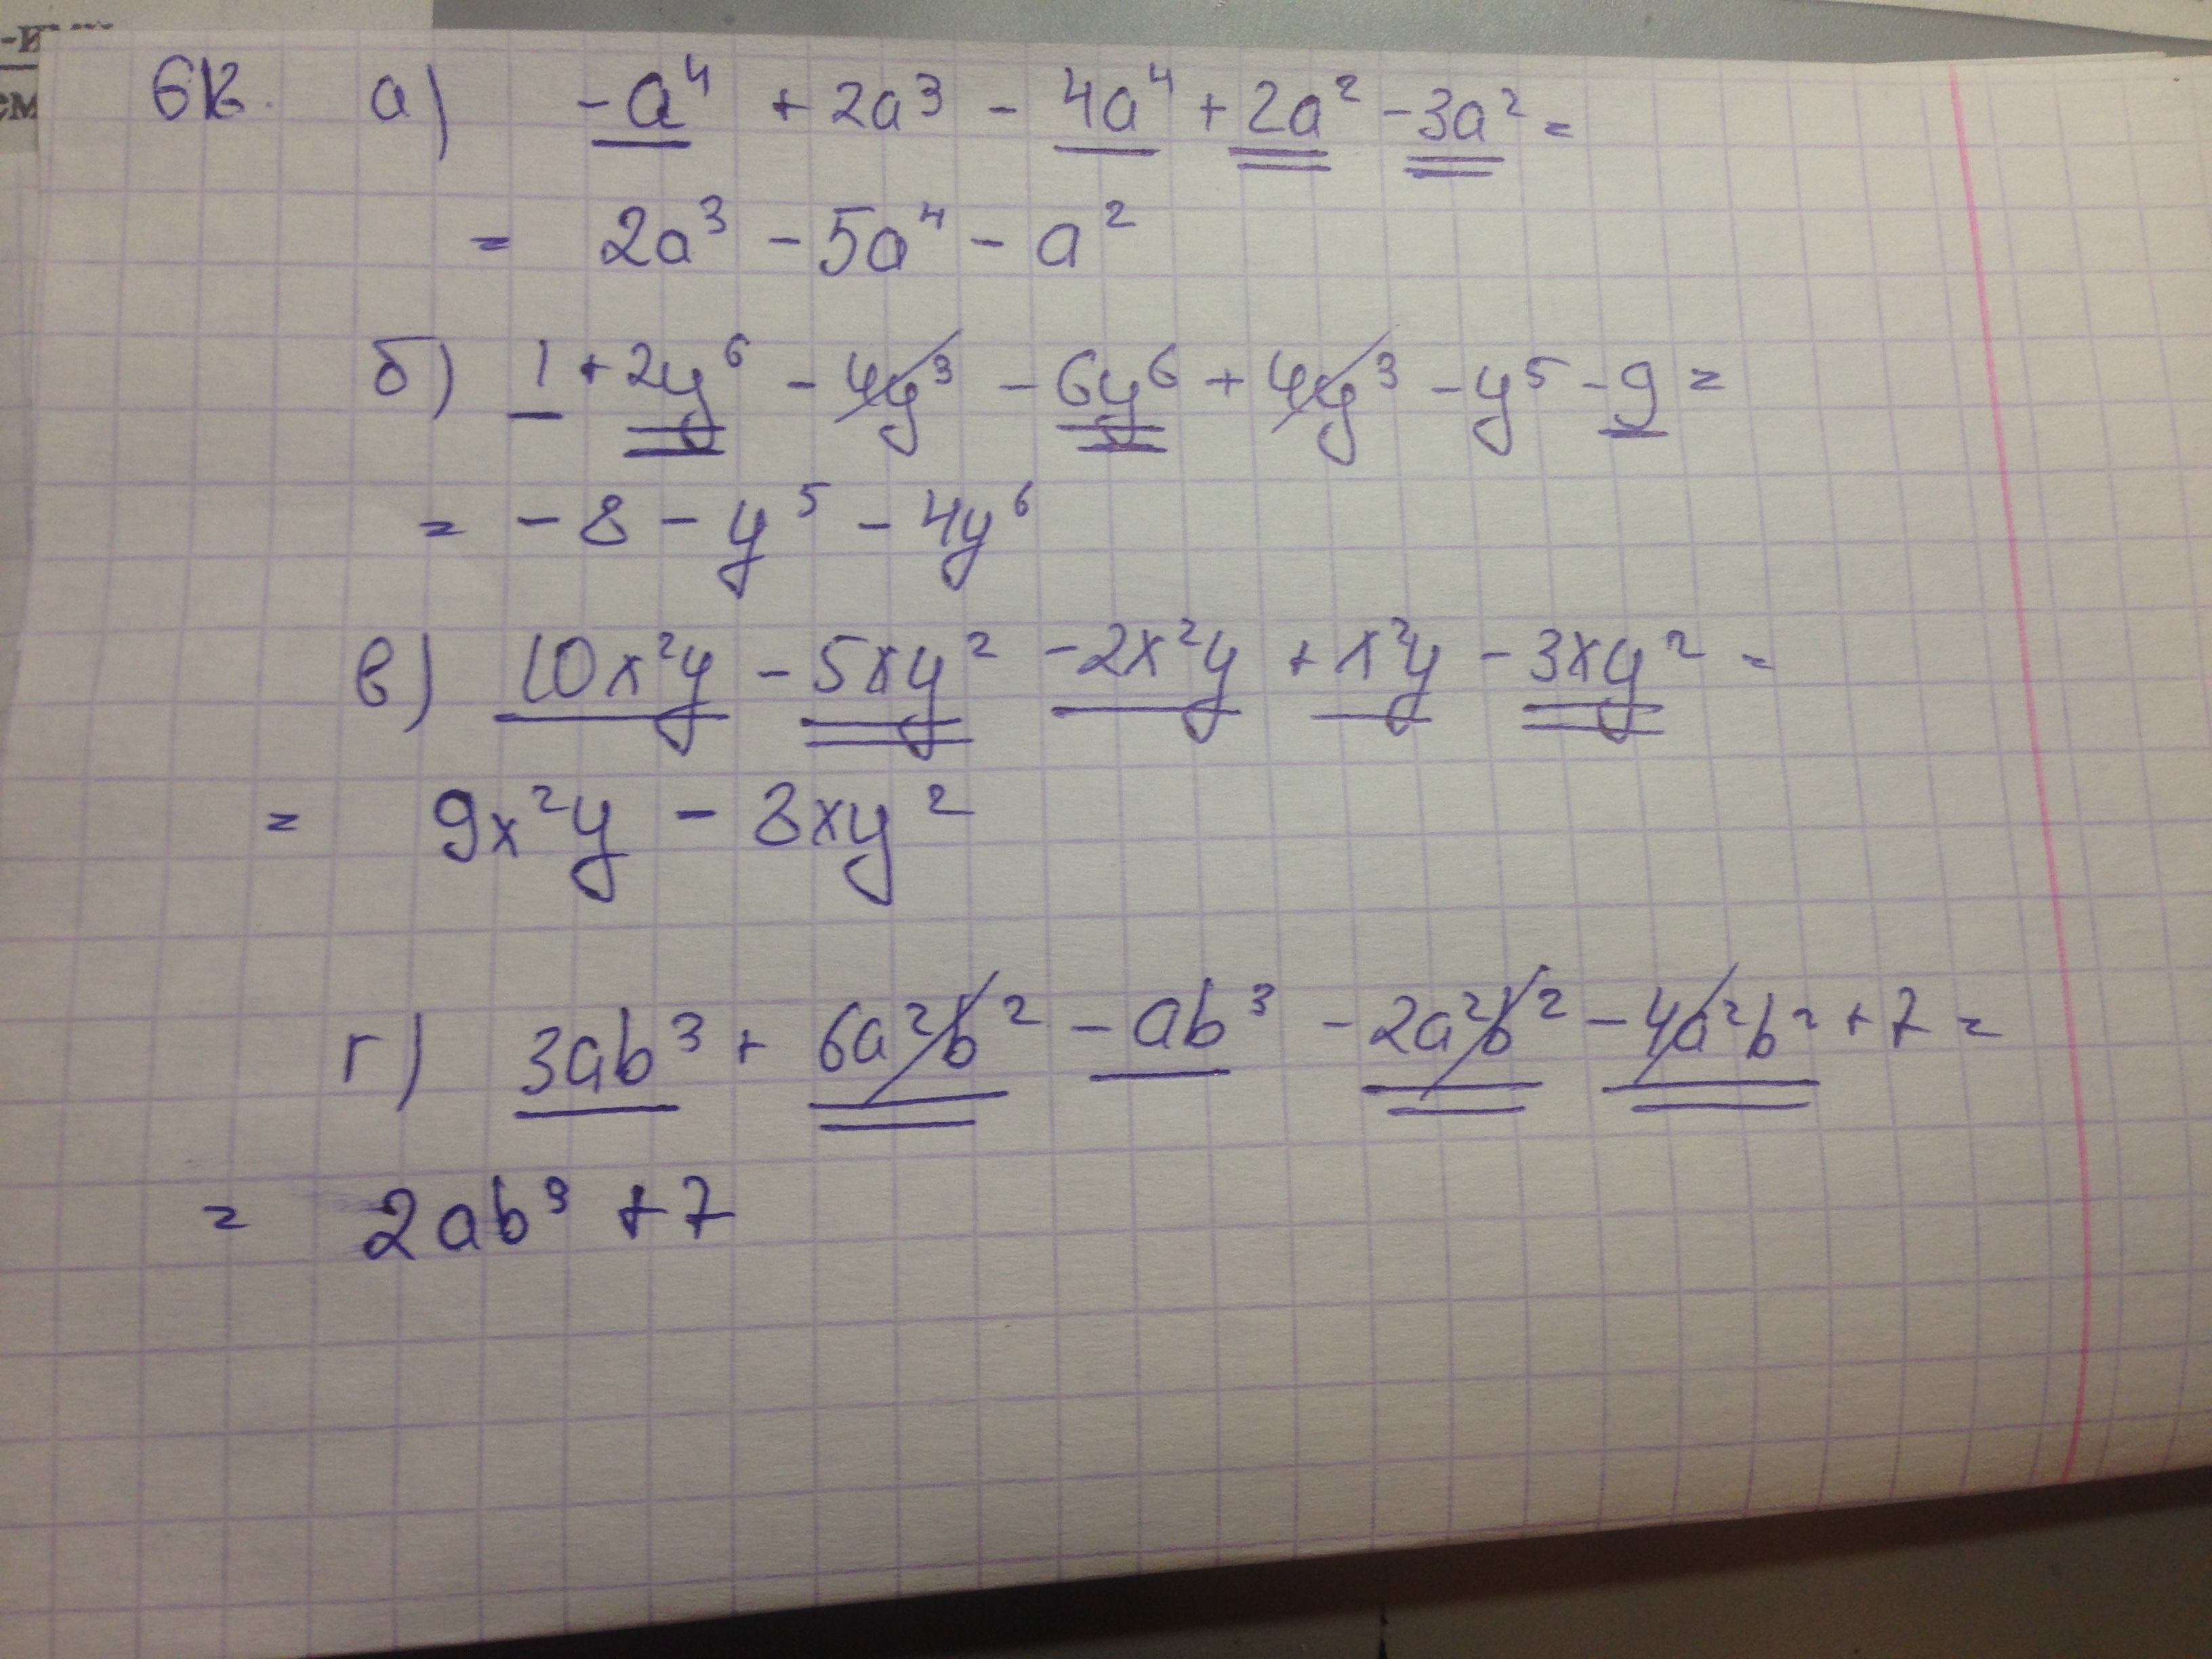 612. а) -a⁴ + 2a³ - 4a⁴ + 2a² - 3a² =
= 2a³ - 5a⁴ - a²
б) 1 + 2y⁶ - 4y³ - 6y⁶ + 4y³ - y⁵ - 9 =
= - 8 - y⁵ - 4y⁶
в) 10x²y - 5xy² - 2x²y + x²y - 3xy² =
= 9x²y - 8xy²
г) 3ab³ + 6a²b² - ab³ - 2a²b² - 4a²b² + 7 =
= 2ab³ + 7